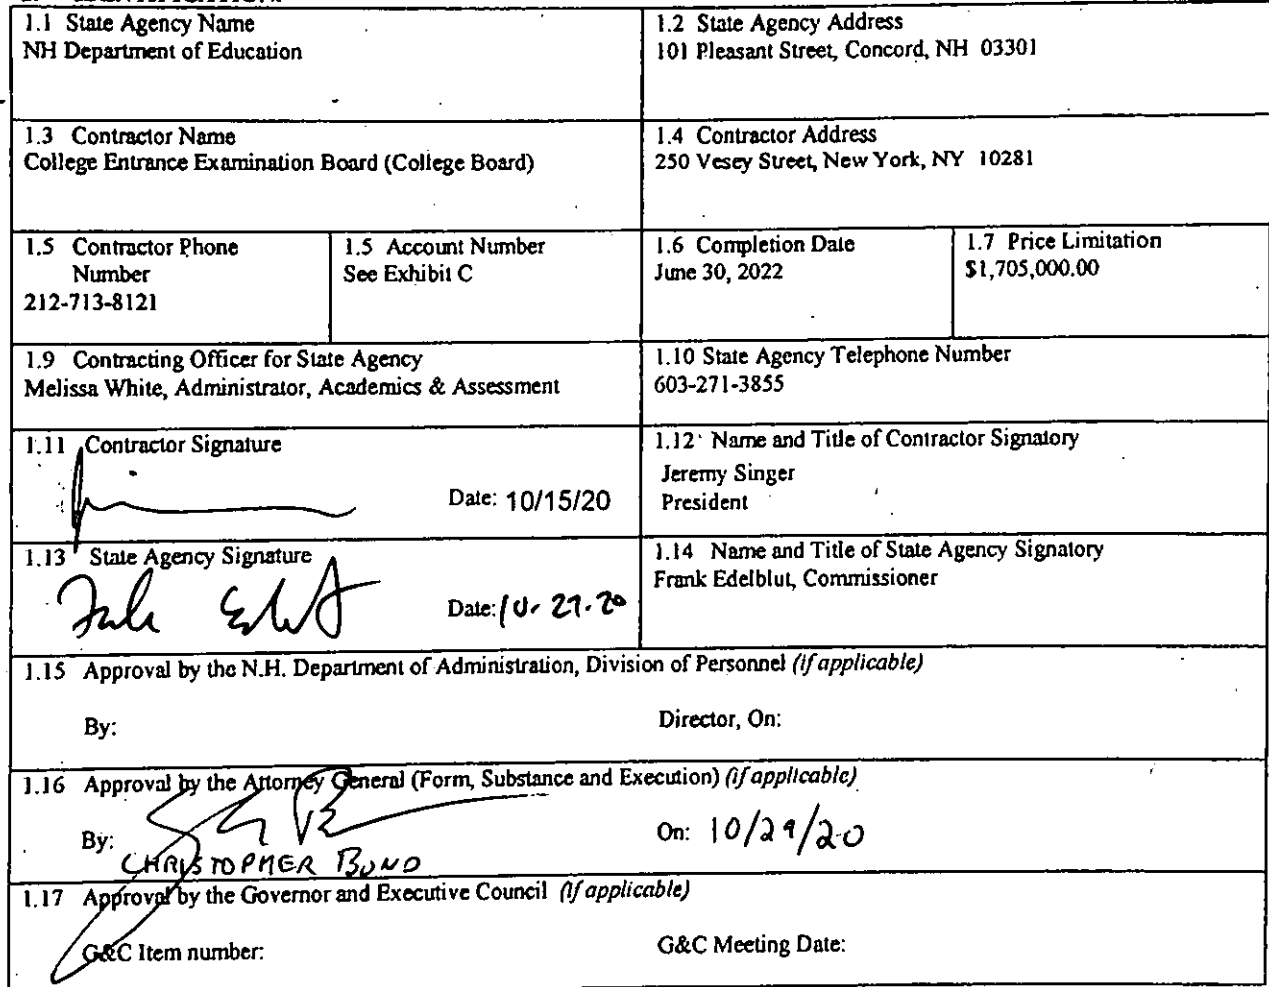 1.1 State Agency Name
NH Department of Education
1.2 State Agency Address
101 Pleasant Street, Concord, NH 03301
1.3 Contractor Name
College Entrance Examination Board (College Board)
1.4 Contractor Address
250 Vesey Street, New York, NY 10281
1.5 Contractor Phone
Number
212-713-8121
1.5 Account Number
See Exhibit C
1.6 Completion Date
June 30, 2022
1.7 Price Limitation
$1,705,000.00
1.9 Contracting Officer for State Agency
Melissa White, Administrator, Academics & Assessment
1.10 State Agency Telephone Number
603-271-3855
1.11 Contractor Signature
Date: 10/15/20
1.12 Name and Title of Contractor Signatory
Jeremy Singer
President
1.13 State Agency Signature
Date: 10-27-20
1.14 Name and Title of State Agency Signatory
Frank Edelblut, Commissioner
1.15 Approval by the N.H. Department of Administration, Division of Personnel (if applicable)
By:
Director, On:
1.16 Approval by the Attorney General (Form, Substance and Execution) (if applicable)
By:
CHRISTOPHER BOND
On: 10/29/20
1.17 Approval by the Governor and Executive Council (if applicable)
G&C Item number:
G&C Meeting Date: